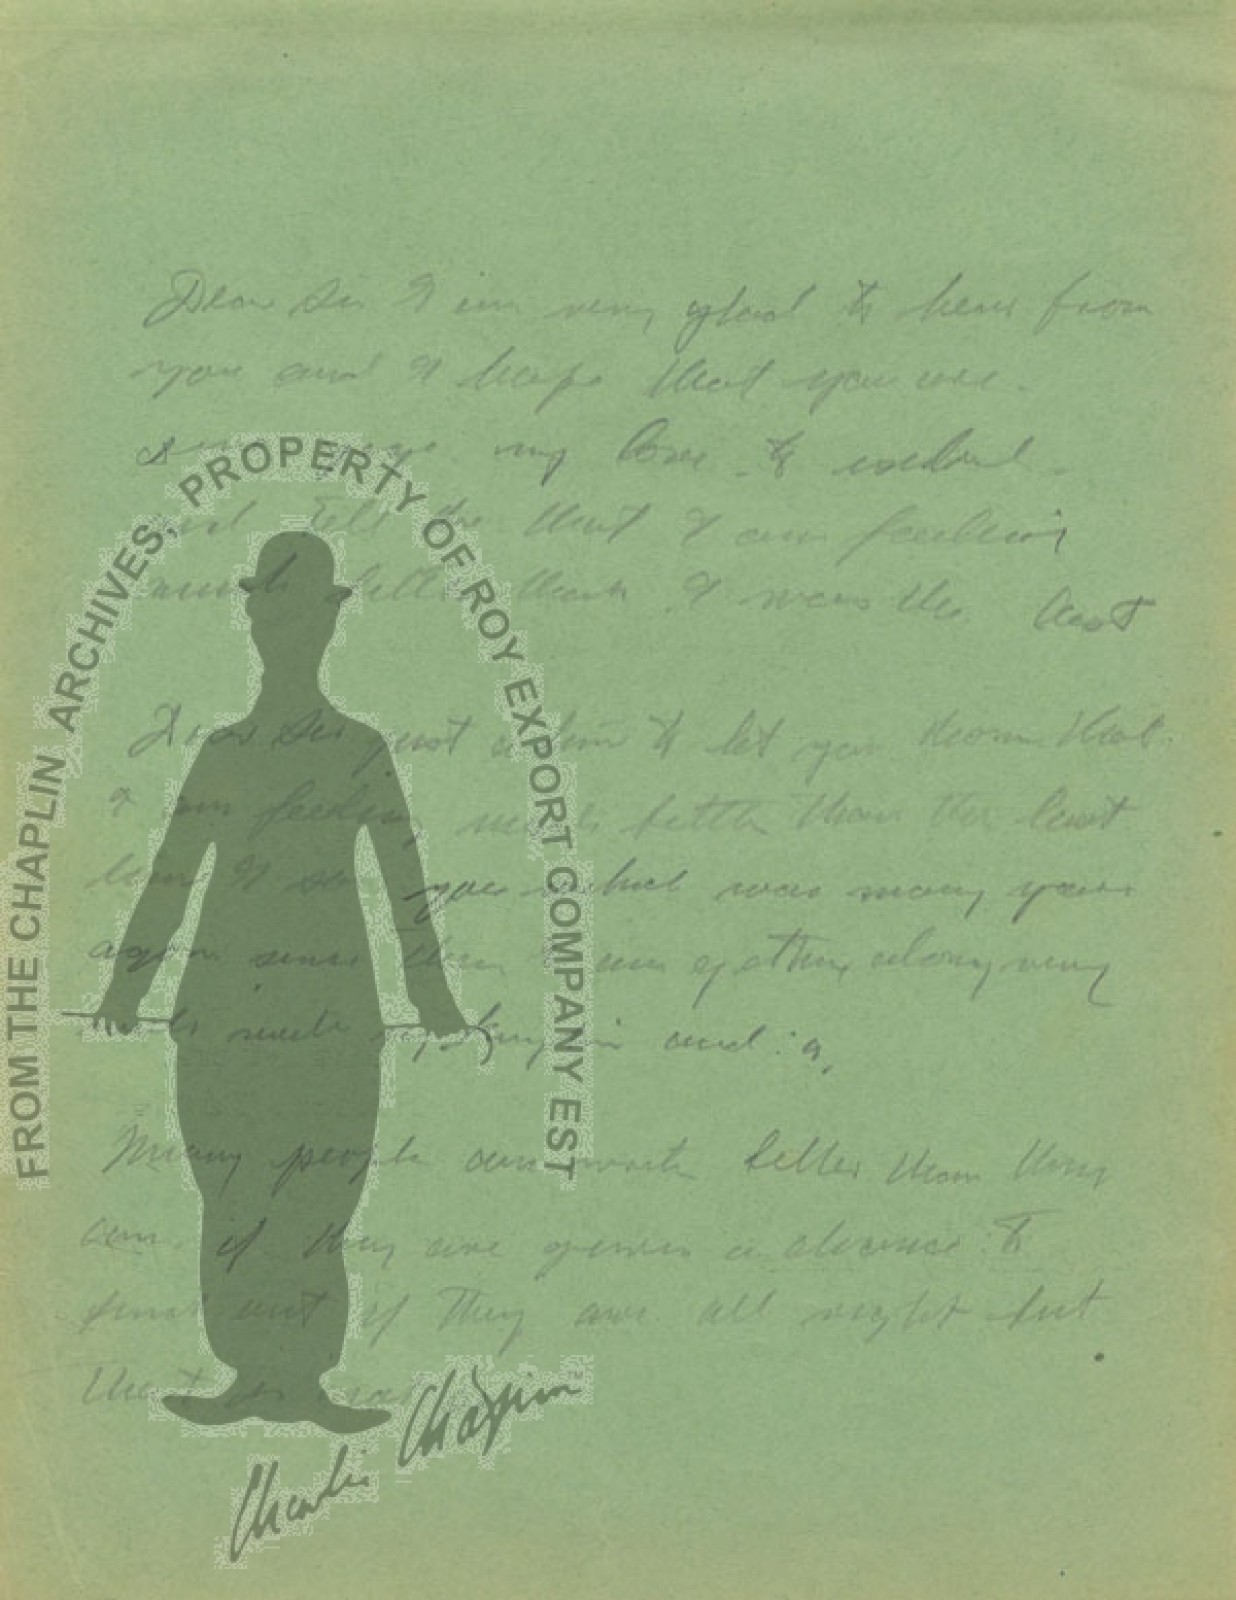 Dear Sir I am very glad to hear from
you and I hope that you are.
my love to
and tell the that I am feeling
much better than I was the last
Dear Sir just a line to let you know that
I am feeling much better than the last
time I saw you which was many years
again since then I am getting along very
and a,
Many people can write better than they
can if they are given a chance to
find out if they are all right but
that is
FROM THE CHAPLIN ARCHIVES, PROPERTY OF ROY EXPORT COMPANY EST
Charlie Chaplin